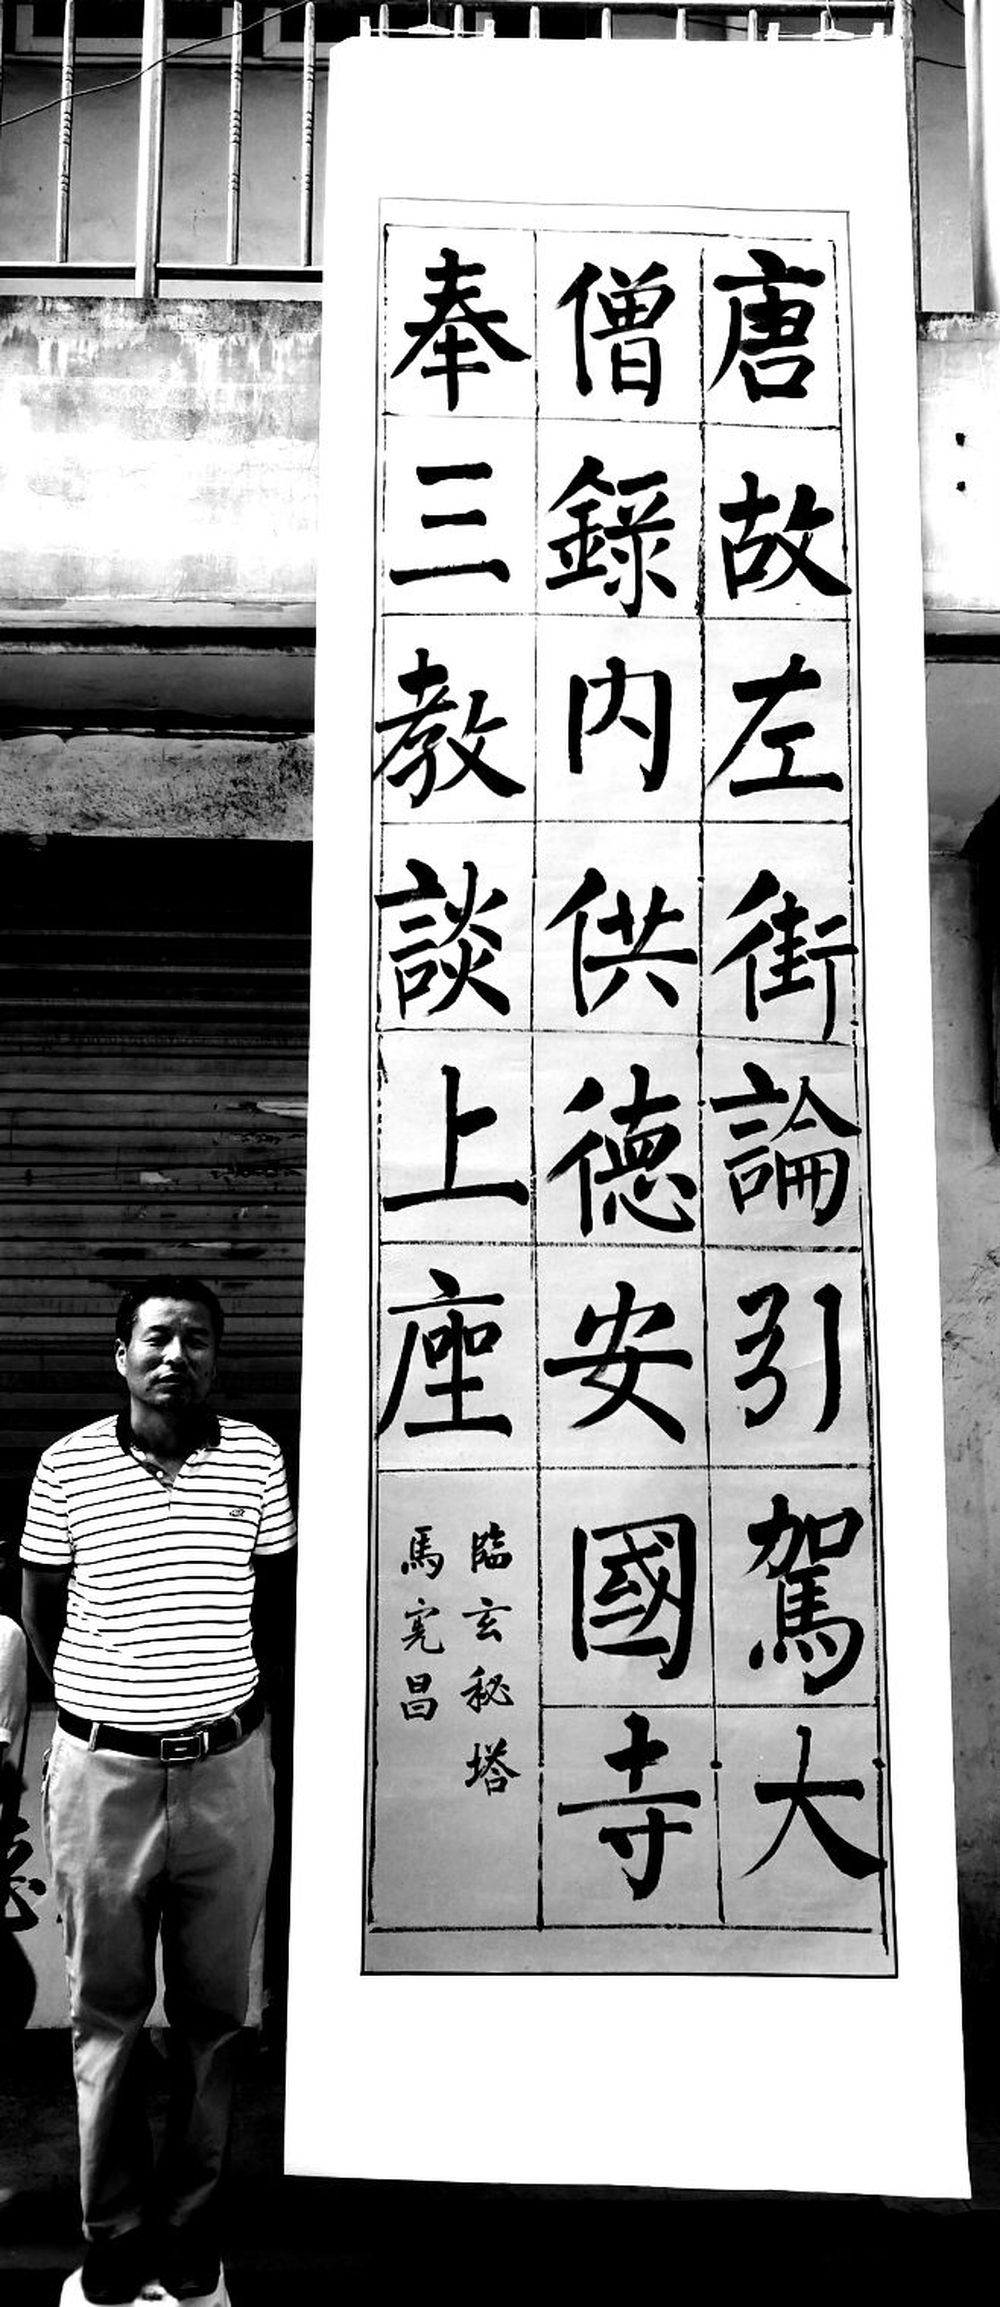 唐故左街論引駕大
僧錄內供德安國寺
奉三教談上座
臨玄秘塔
馬宪昌